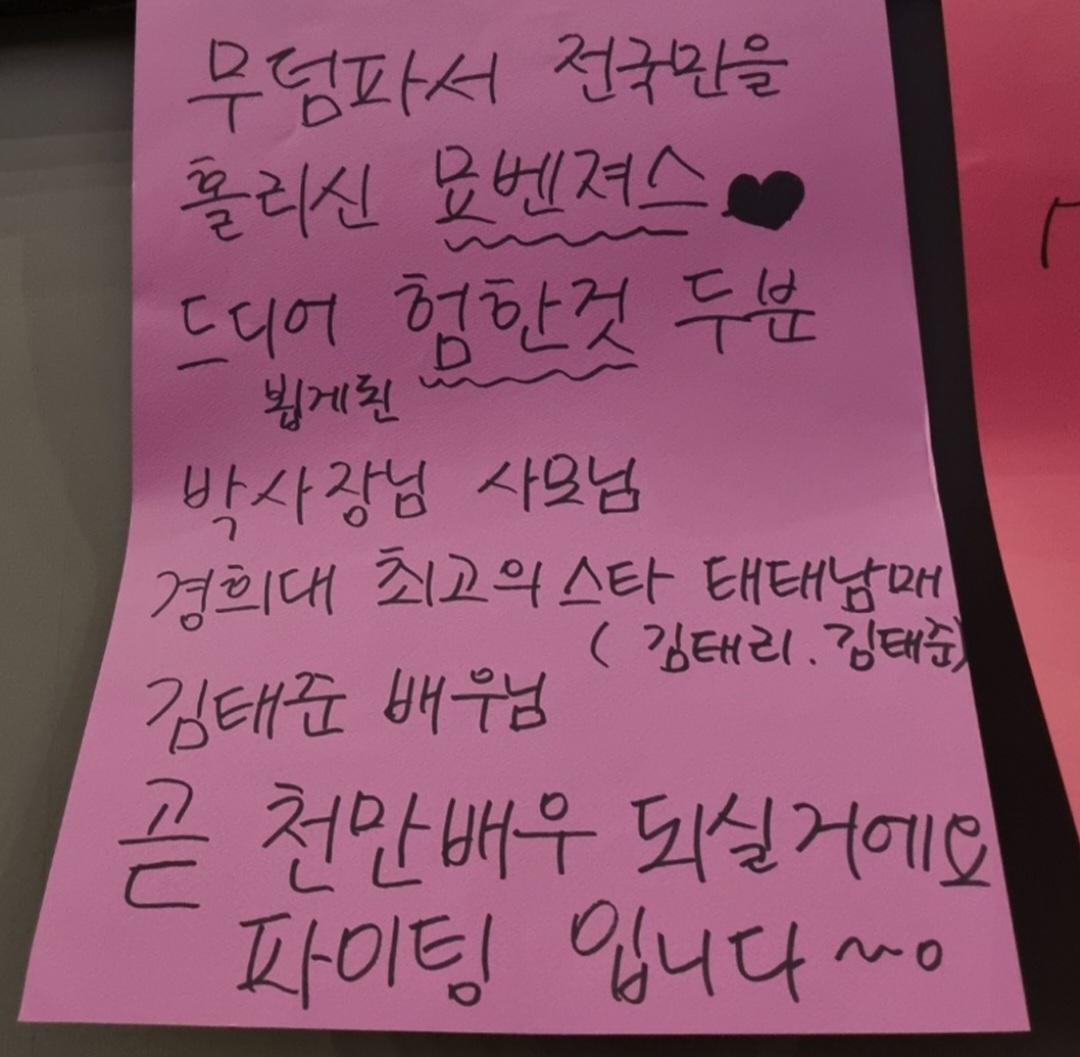 무덤파서 전국민을
홀리신 묘벤져스♥
드디어 험한것 두분
뵙게된
박사장님 사모님
경희대 최고의 스타 태태남매
( 김태리. 김태준)
김태준 배우님
곧 천만배우 되실거에요
파이팅 입니다~~o